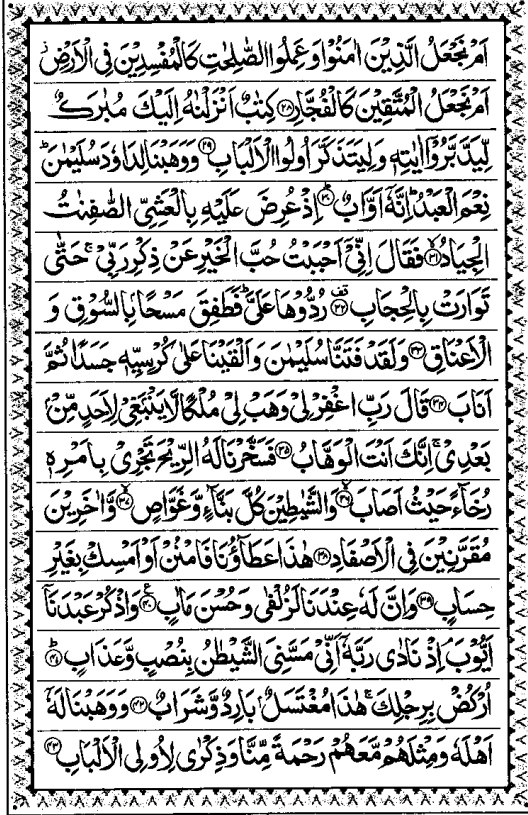 اَمْ نَجْعَلُ الَّذِیْنَ اٰمَنُوْا وَ عَمِلُوا الصّٰلِحٰتِ كَالْمُفْسِدِیْنَ فِی الْاَرْضِ٘
اَمْ نَجْعَلُ الْمُتَّقِیْنَ كَالْفُجَّارِ ﴿۲۸﴾ كِتٰبٌ اَنْزَلْنٰهُ اِلَیْكَ مُبٰرَكٌ
لِّیَدَّبَّرُوْۤا اٰیٰتِهٖ وَ لِیَتَذَكَّرَ اُولُوا الْاَلْبَابِ ﴿۲۹﴾ وَ وَهَبْنَا لِدَاوٗدَ سُلَیْمٰنَؕ
نِعْمَ الْعَبْدُؕ اِنَّهٗۤ اَوَّابٌؕ ﴿۳۰﴾ اِذْ عُرِضَ عَلَیْهِ بِالْعَشِیِّ الصّٰفِنٰتُ
الْجِیَادُۙ ﴿۳۱﴾ فَقَالَ اِنِّیْۤ اَحْبَبْتُ حُبَّ الْخَیْرِ عَنْ ذِكْرِ رَبِّیْۚ حَتّٰى
تَوَارَتْ بِالْحِجَابِٙ ﴿۳۲﴾ رُدُّوْهَا عَلَیَّؕ فَطَفِقَ مَسْحًۢا بِالسُّوْقِ وَ
الْاَعْنَاقِ ﴿۳۳﴾ وَ لَقَدْ فَتَنَّا سُلَیْمٰنَ وَ اَلْقَیْنَا عَلٰى كُرْسِیِّهٖ جَسَدًا ثُمَّ
اَنَابَ ﴿۳۴﴾ قَالَ رَبِّ اغْفِرْ لِیْ وَ هَبْ لِیْ مُلْكًا لَّا یَنْۢبَغِیْ لِاَحَدٍ مِّنْۢ
بَعْدِیْۚ اِنَّكَ اَنْتَ الْوَهَّابُ ﴿۳۵﴾ فَسَخَّرْنَا لَهُ الرِّیْحَ تَجْرِیْ بِاَمْرِهٖ
رُخَآءً حَیْثُ اَصَابَۙ ﴿۳۶﴾ وَ الشَّیٰطِیْنَ كُلَّ بَنَّآءٍ وَّ غَوَّاصٍۙ ﴿۳۷﴾ وَّ اٰخَرِیْنَ
مُقَرَّنِیْنَ فِی الْاَصْفَادِ ﴿۳۸﴾ هٰذَا عَطَآؤُنَا فَامْنُنْ اَوْ اَمْسِكْ بِغَیْرِ
حِسَابٍ ﴿۳۹﴾ وَ اِنَّ لَهٗ عِنْدَنَا لَزُلْفٰى وَ حُسْنَ مَاٰبٍ۠ ﴿۴۰﴾ وَ اذْكُرْ عَبْدَنَاۤ
اَیُّوْبَۘ اِذْ نَادٰى رَبَّهٗۤ اَنِّیْ مَسَّنِیَ الشَّیْطٰنُ بِنُصْبٍ وَّ عَذَابٍؕ ﴿۴۱﴾
اُرْكُضْ بِرِجْلِكَۚ هٰذَا مُغْتَسَلٌۢ بَارِدٌ وَّ شَرَابٌ ﴿۴۲﴾ وَ وَهَبْنَا لَهٗۤ
اَهْلَهٗ وَ مِثْلَهُمْ مَّعَهُمْ رَحْمَةً مِّنَّا وَ ذِكْرٰى لِاُولِی الْاَلْبَابِ ﴿۴۳﴾